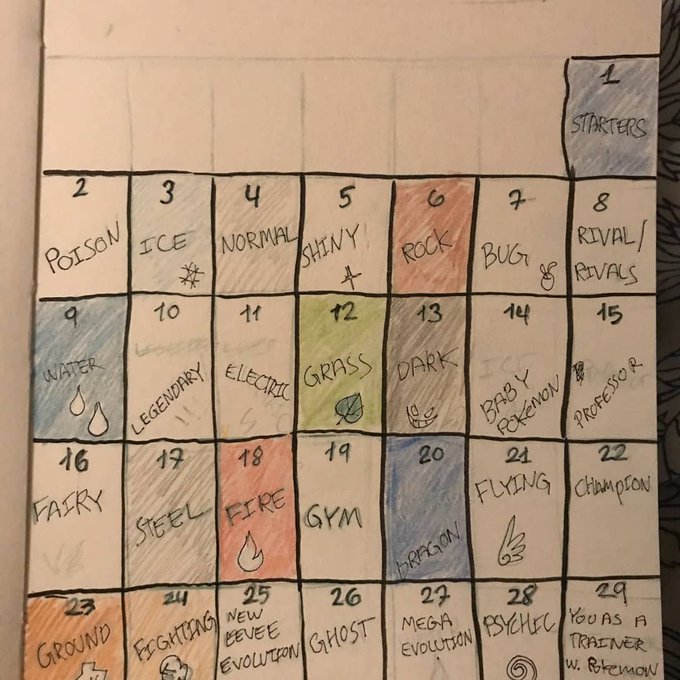 1
STARTERS
2 3 4 5 6 7 8
POISON ICE NORMAL SHINY ROCK BUG RIVAL/
RIVALS
9 10 11 12 13 14 15
WATER LEGENDARY ELECTRIC GRASS DARK BABY POKéMON PROFESSOR
16 17 18 19 20 21 22
FAIRY STEEL FIRE GYM DRAGON FLYING CHAMPION
23 24 25 26 27 28 29
GROUND FIGHTING NEW GHOST MEGA PSYCHIC YOU AS A
EEVEE EVOLUTION TRAINER
EVOLUTION W. POKEMON